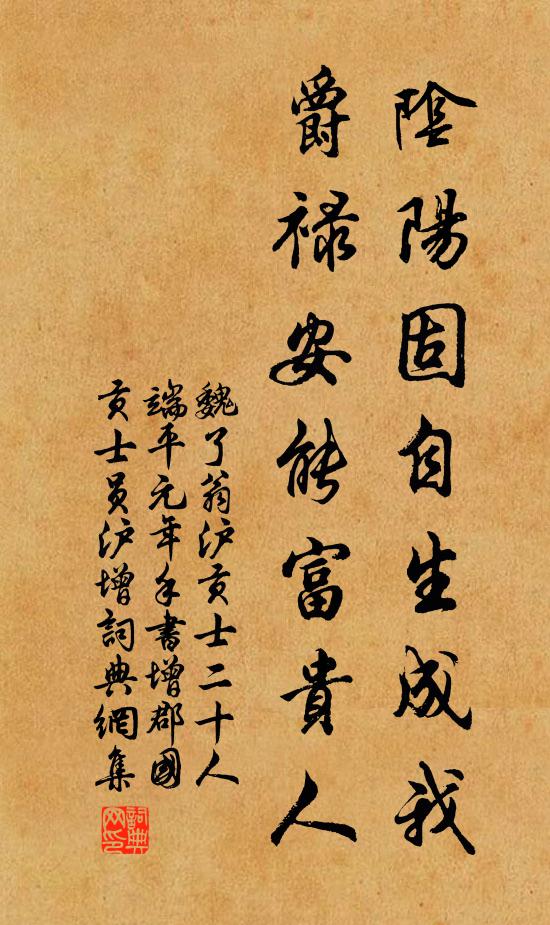 陰陽固自生成我
爵祿安能富貴人
魏了翁泸贡士二十人
端平元年手書增郡國
贡士员泸增詞典網集
詞典
网印